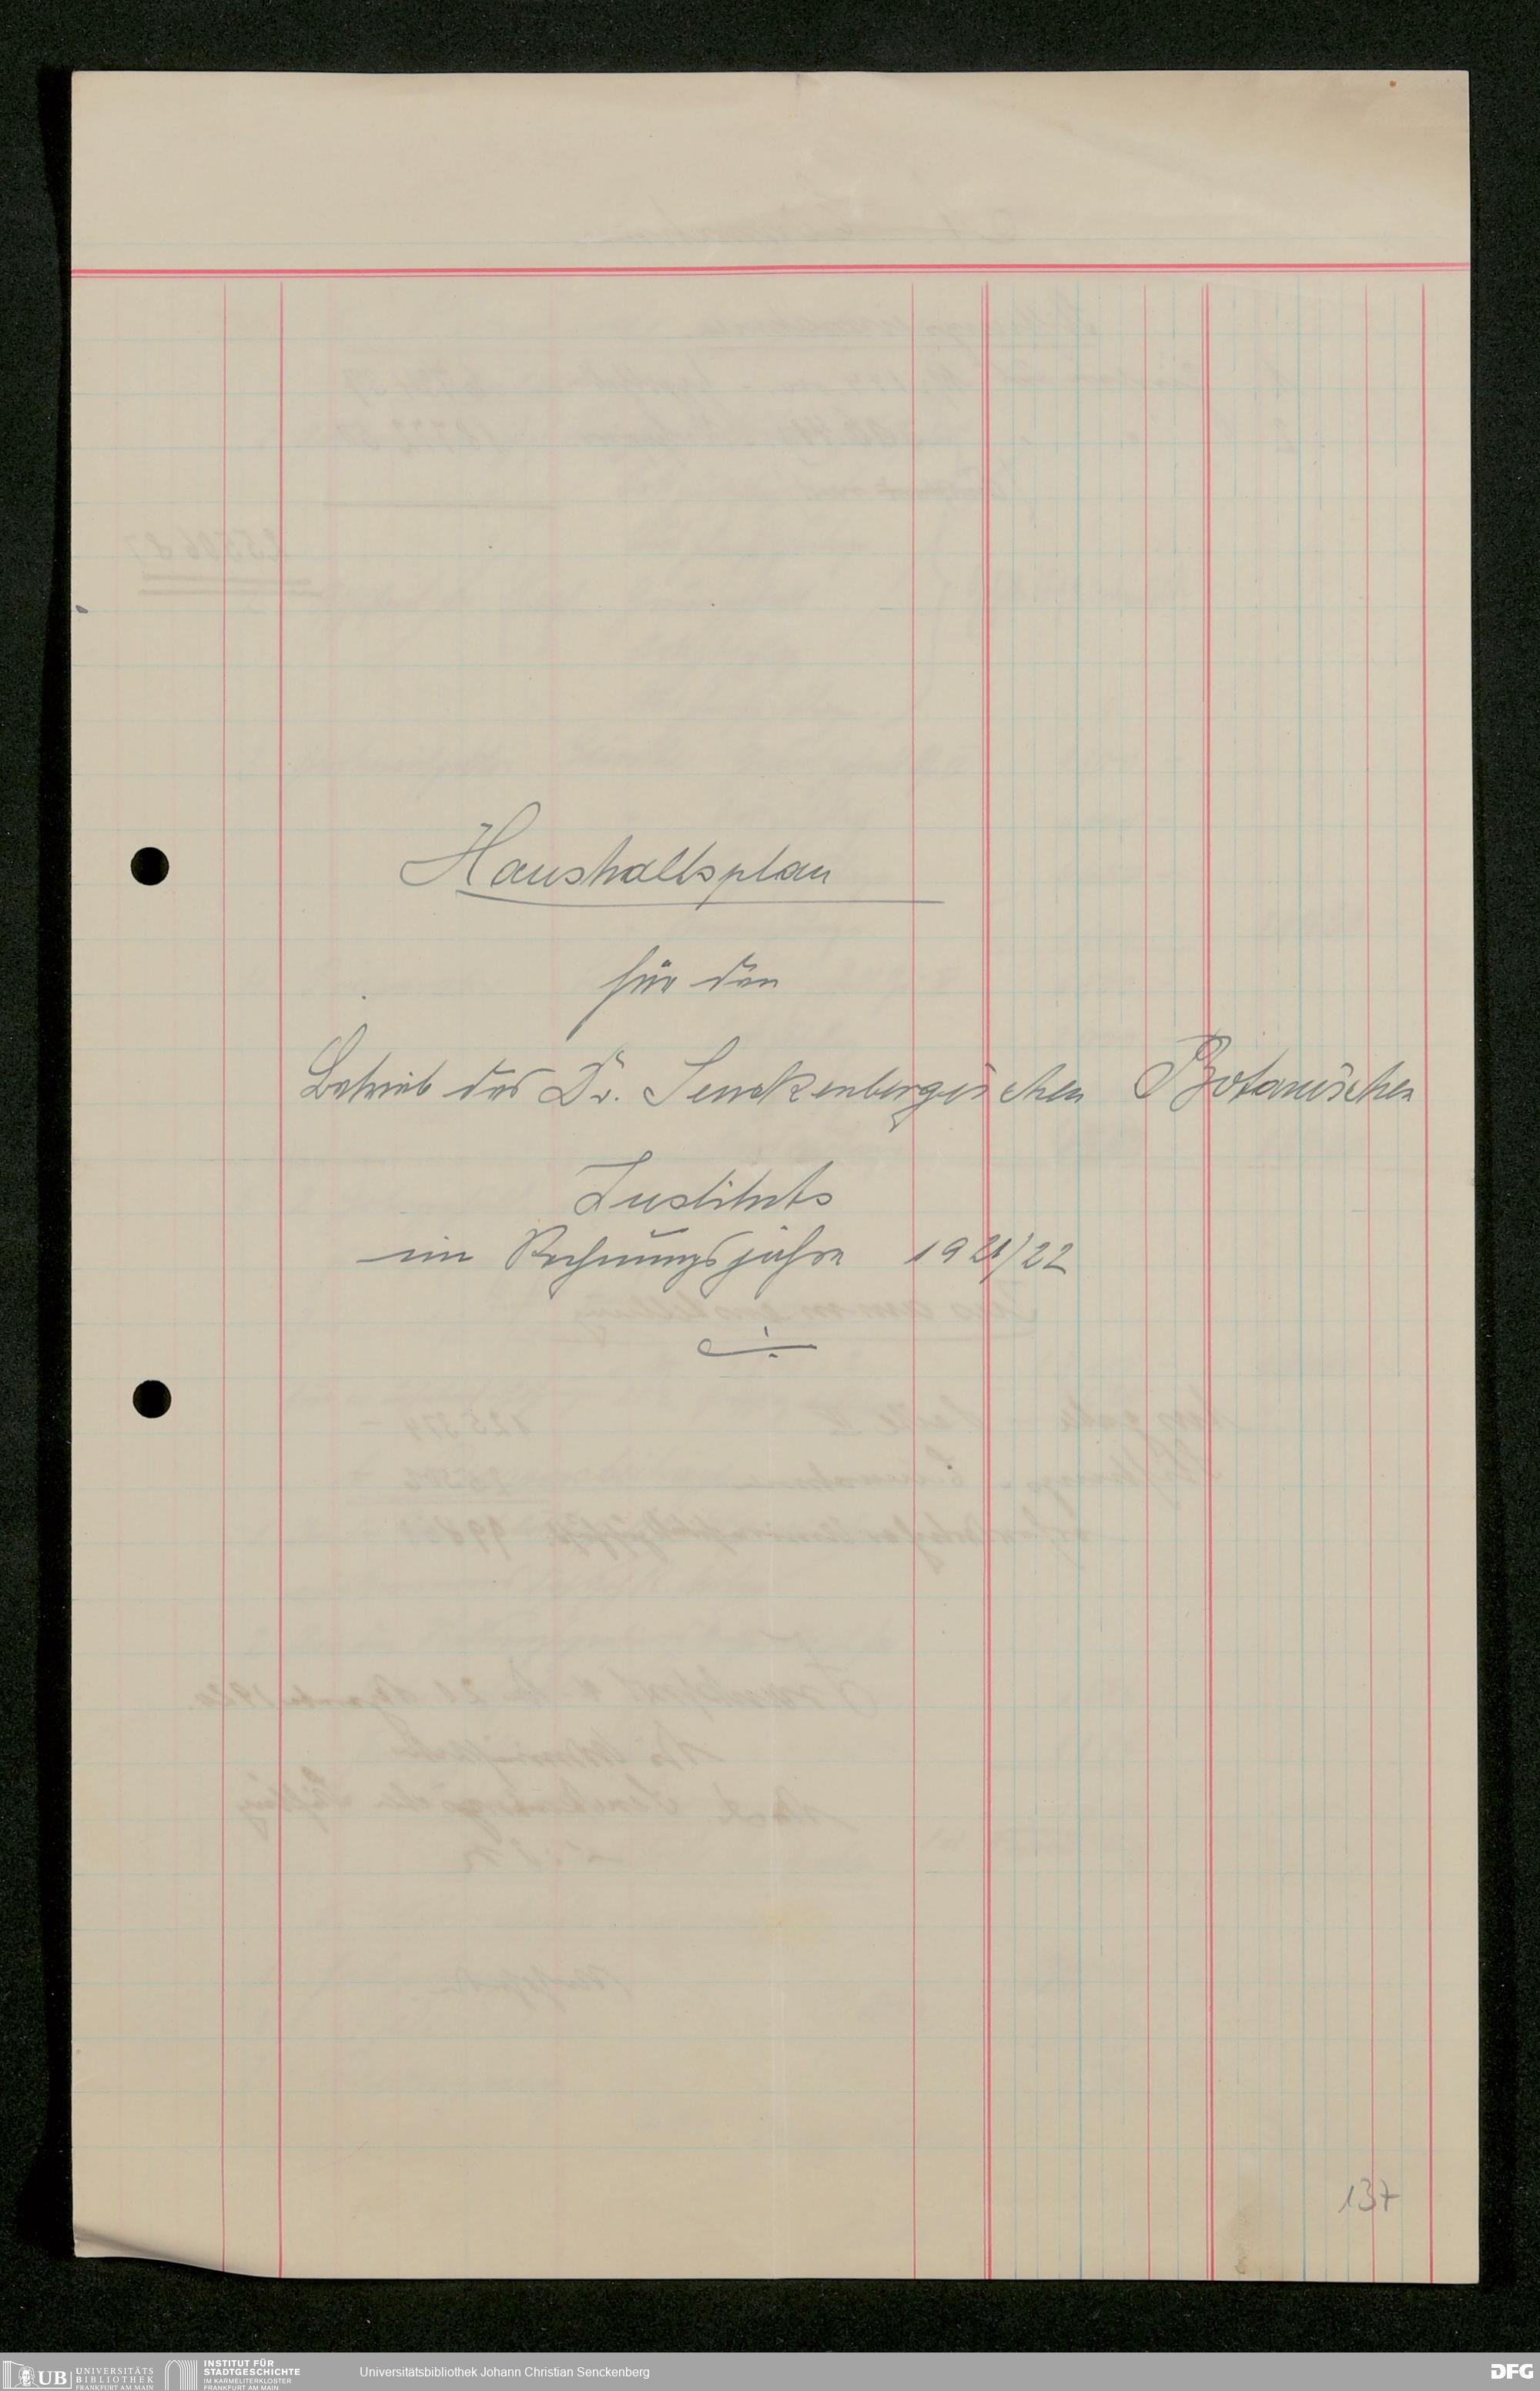 Haushaltsplan
für den
Betrieb des Dr. Senckenbergischen Botanischen
Instituts
im Rechnungsjahre 1921/22
137
UB UNIVERSITÄTS BIBLIOTHEK FRANKFURT AM MAIN
INSTITUT FÜR STADTGESCHICHTE IM KARMELITERKLOSTER FRANKFURT AM MAIN
Universitätsbibliothek Johann Christian Senckenberg
DFG